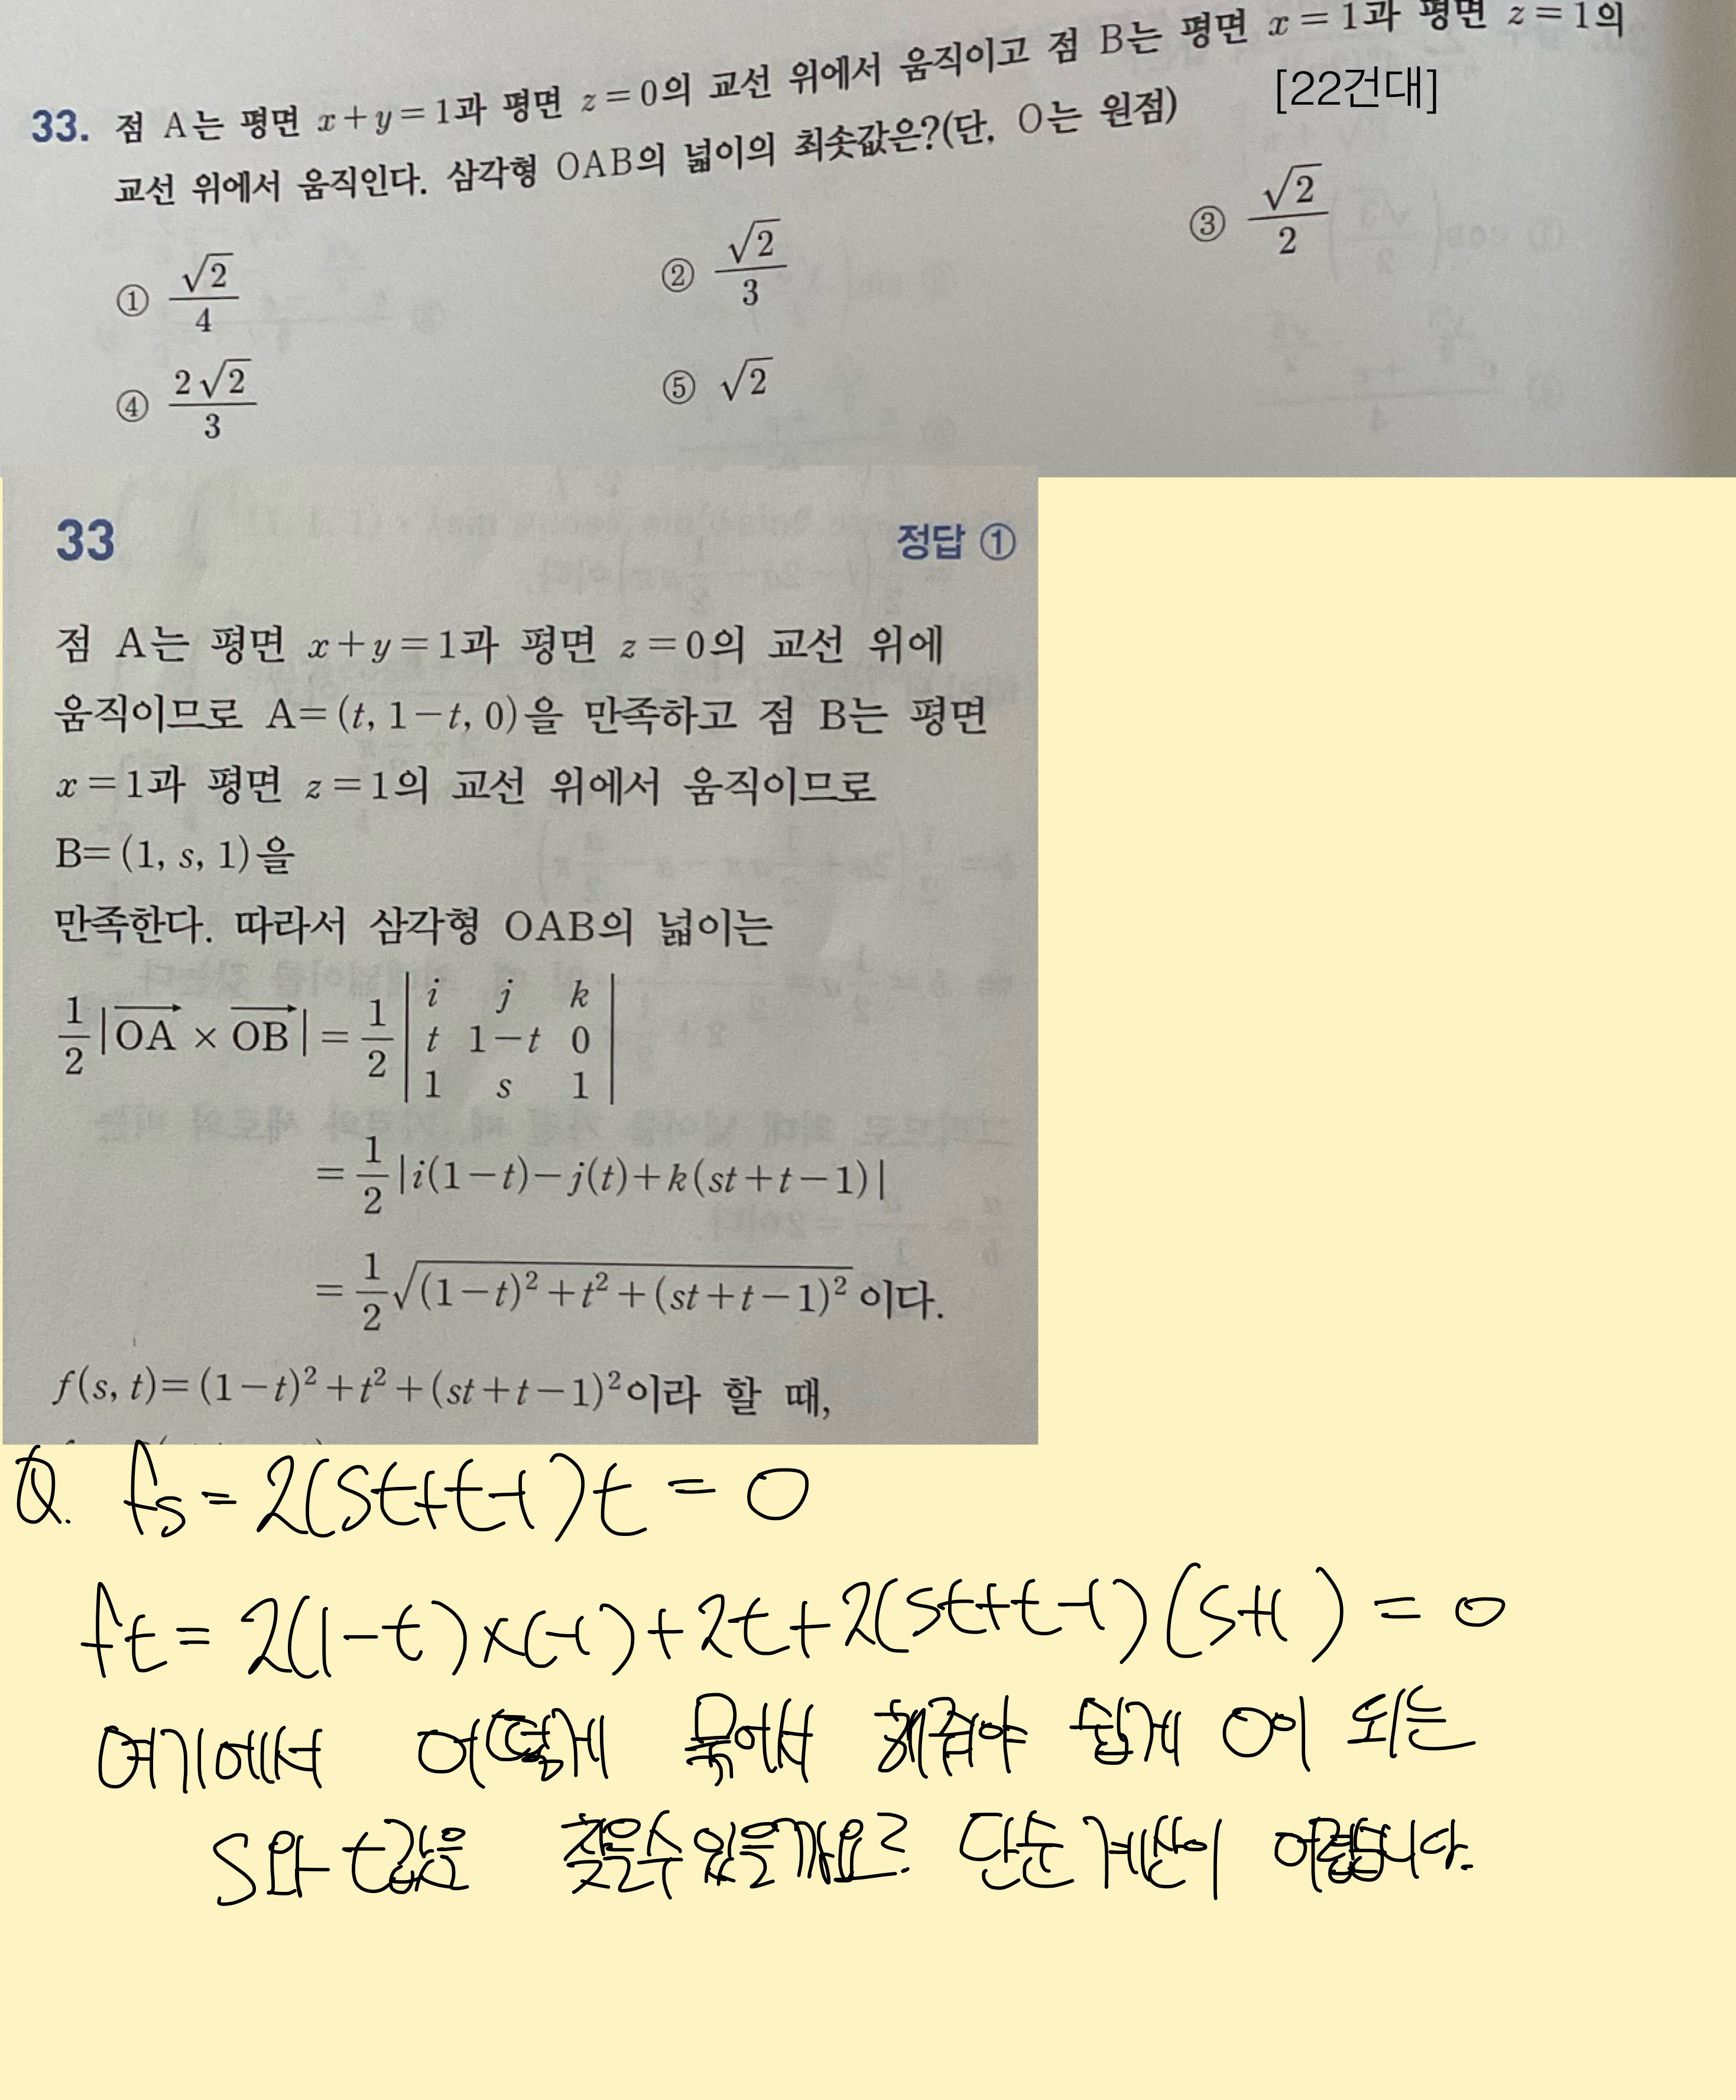 33. 점 A는 평면 x+y=1과 평면 z=0의 교선 위에서 움직이고 점 B는 평면 x=1과 평면 z=1의
[22건대]
교선 위에서 움직인다. 삼각형 OAB의 넓이의 최솟값은?(단, O는 원점)
① √2/4
② √2/3
③ √2/2
④ 2√2/3
⑤ √2
33 정답 ①
점 A는 평면 x+y=1과 평면 z=0의 교선 위에
움직이므로 A=(t, 1−t, 0)을 만족하고 점 B는 평면
x=1과 평면 z=1의 교선 위에서 움직이므로
B=(1, s, 1)을
만족한다. 따라서 삼각형 OAB의 넓이는
1/2|OA × OB| = 1/2 | i j k |
| t 1−t 0 |
| 1 s 1 |
= 1/2|i(1−t)−j(t)+k(st+t−1)|
= 1/2√((1−t)²+t²+(st+t−1)²) 이다.
f(s, t)=(1−t)²+t²+(st+t−1)²이라 할 때,
Q. fs = 2(st+t-1)t = 0
ft = 2(1-t)×(-1)+2t+2(st+t-1)(s+1) = 0
여기에서 어떻게 묶어서 해줘야 쉽게 0이 되는
s와 t값을 찾을수 있을까요? 단순 계산이 어렵습니다.